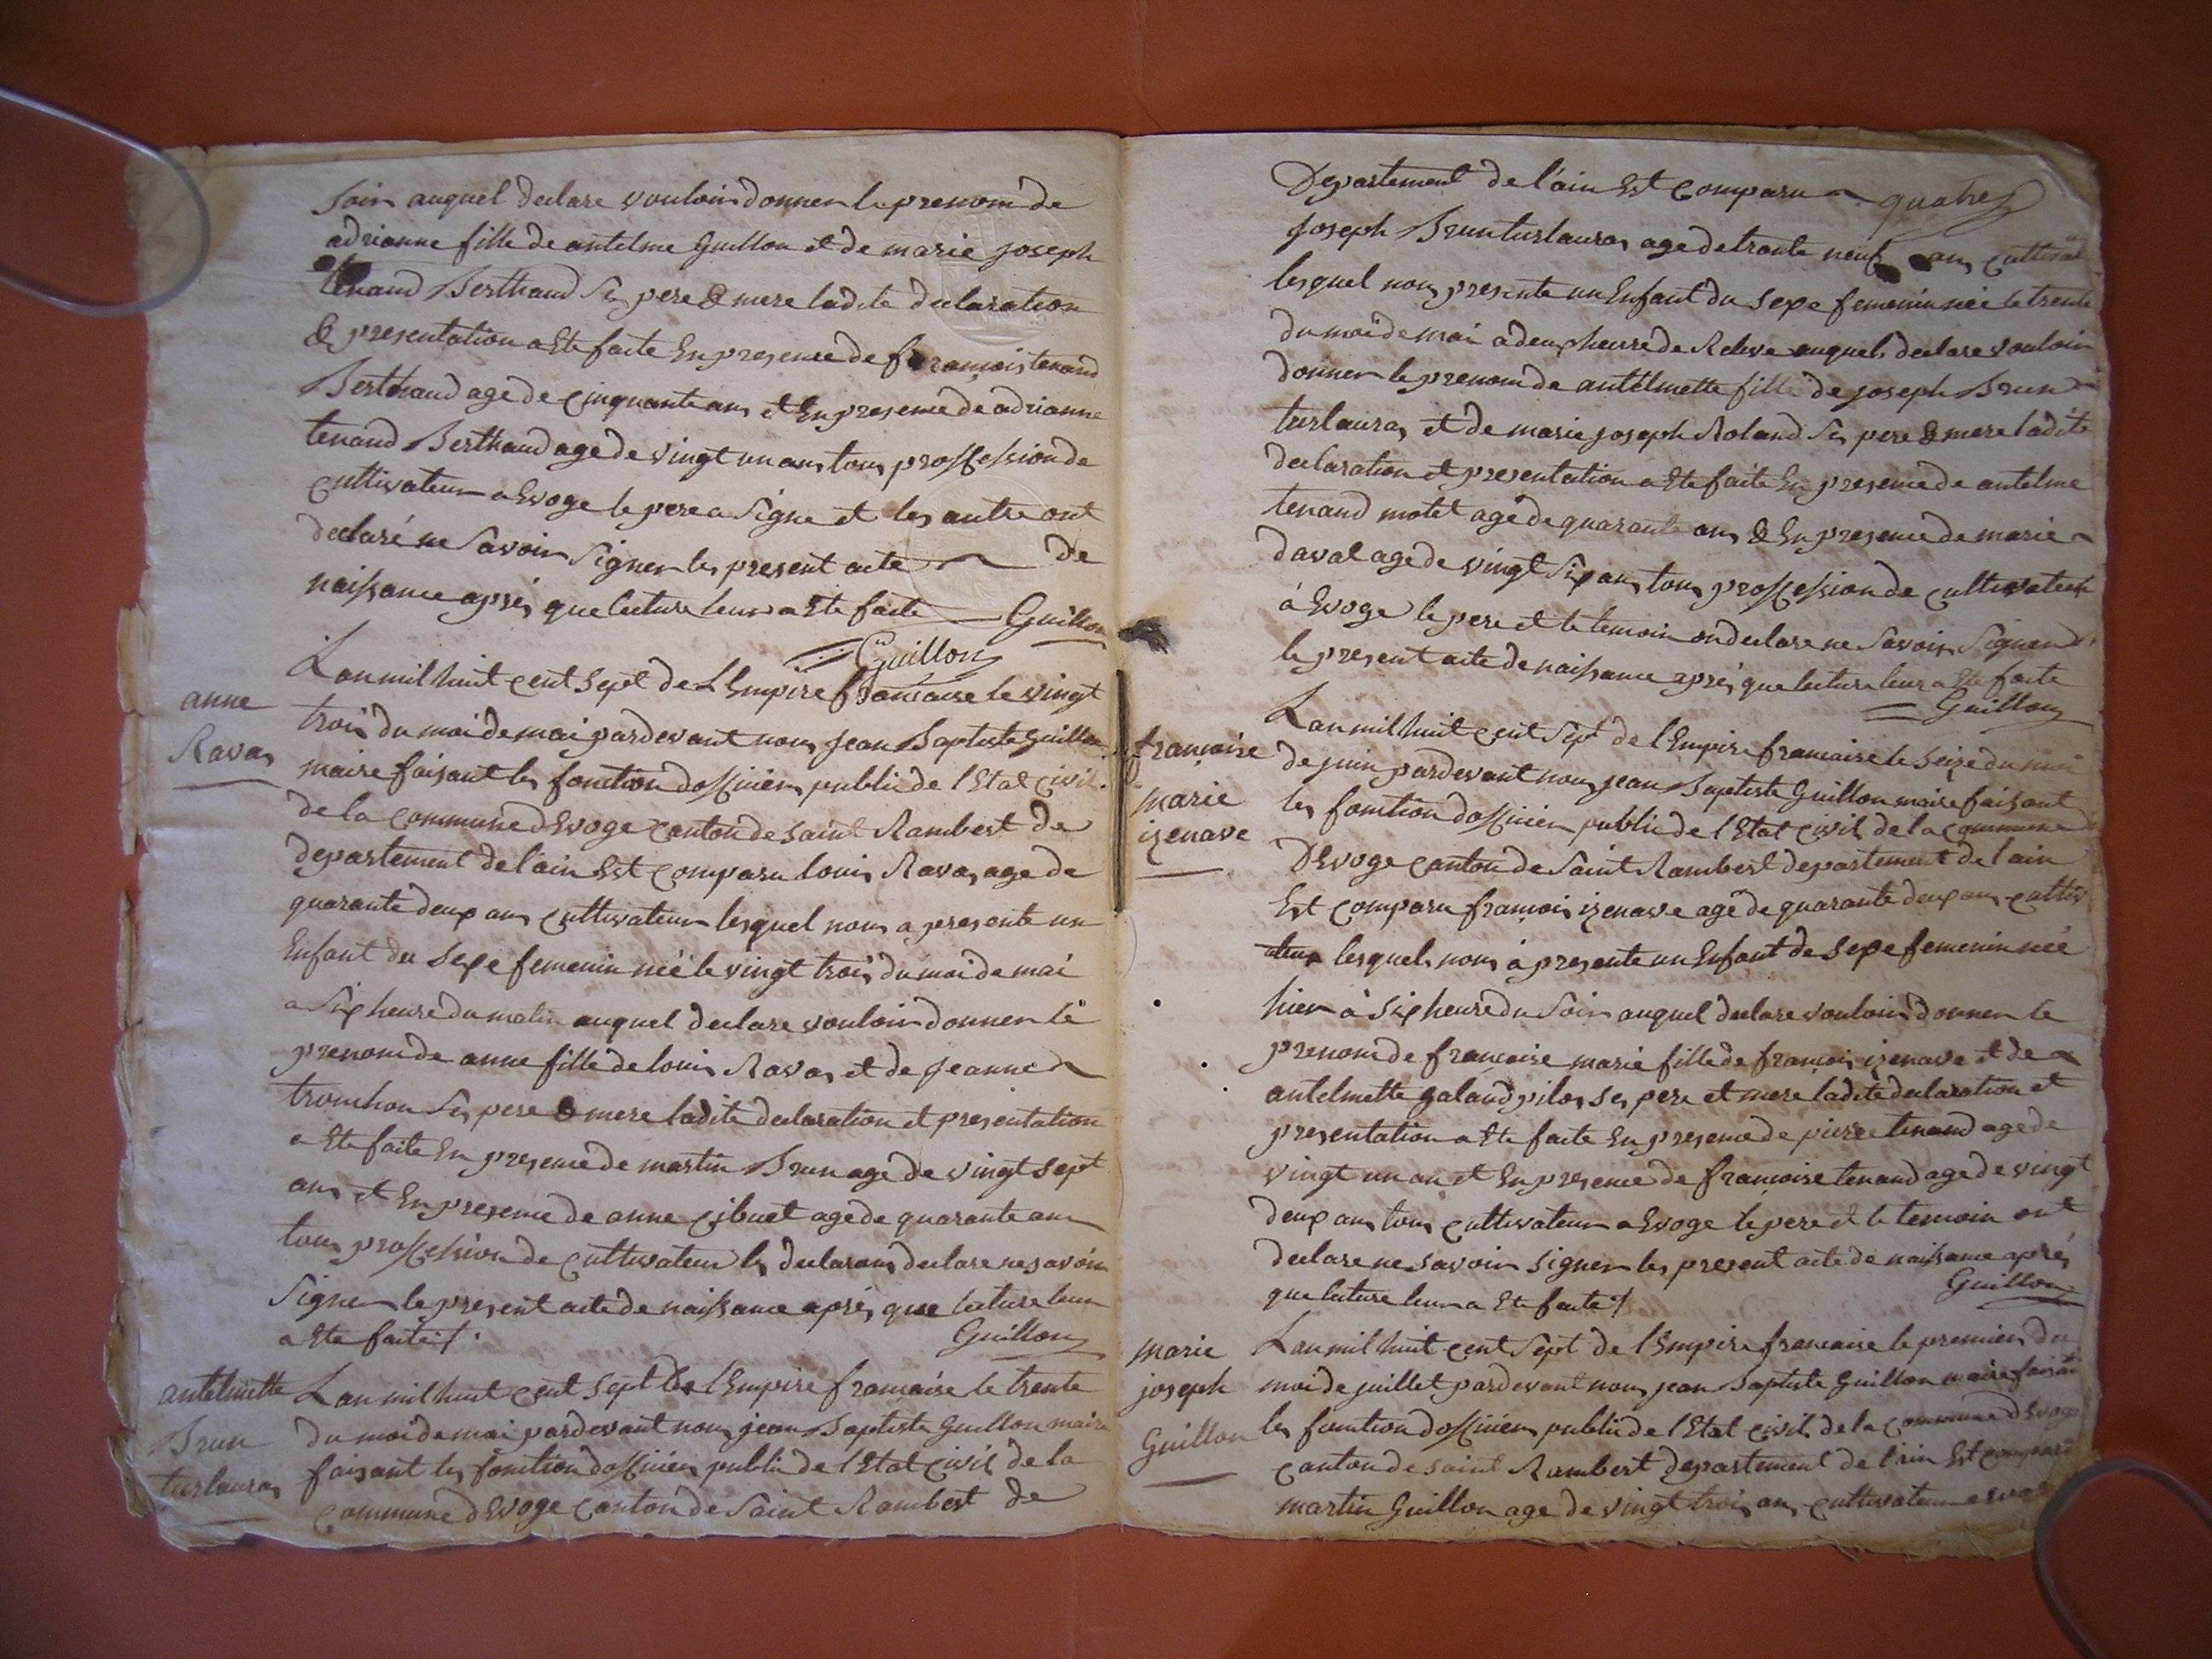 soir auquel declare vouloir donner le prenom de
adrianne fille de antelme Guillon et de marie joseph
tenand Berthaud ses pere & mere ladite declaration
& presentation a Ete faite En presence de francois tenand
Berthaud age de cinquante ans et En presence de adrianne
tenand Berthaud age de vingt un ans tous proffession de
cultivateur a Evoge le pere a signe et les autre ont
declaré ne savoir signer les present acte de
naissance aprés que lecture leur a Ete faite Guillon
Guillon
anne
Ravas
Lan mil huit cent sept de L Empire francaise le vingt
trois du moi de mai pardevant nous jean Baptiste Guillon
maire faisant les fonction dofficier public de l Etat civil
de la commune d Evoge canton de saint Rambert de
departement de l'ain Est comparu louis Ravas age de
quarante deux ans cultivateur lesquel nous a presente un
Enfant du sexe femenin néé le vingt trois du moi de mai
a six heure du matin auquel declare vouloir donner le
prenom de anne fille de louis Ravas et de jeanne
tronchon ses pere & mere ladite declaration et presentation
a Ete faite En presence de martin Brun age de vingt sept
ans et En presence de anne cibuet age de quarante ans
tous proffession de cultivateur les declarans declare ne savoir
signer le present acte de naissance aprés que lecture leur
a Ete faite /. Guillon
antelmette
Brun
turlauras
Lan mil huit cent sept de l Empire francaise le trente
du moi de mai pardevant nous jean Baptiste Guillon maire
faisant les fonction dofficier public de l Etat civil de la
commune d Evoge canton de saint Rambert de
Departement de l'ain Est comparu quatre
joseph Brun turlauras age de trante neuf ans cultivat
lesquel nous presente un Enfant du sexe femenin néé le trente
du moi de mai a deux heurre de Releve auquels declare vouloir
donner le prenom de antelmette fille de joseph Brun
turlauras et de marie joseph Roland ses pere & mere ladite
declaration et presentation a Ete faite En presence de antelme
tenand motet agé de quarante ans & En presence de marie
daval age de vingt six ans tous proffession de cultivateur
á Evoge le pere et le temoin on declare ne savoir signer
le present acte de naissance aprés que lecture leur a Ete faite
Guillon
francoise
marie
izenave
Lan mil huit cent sept de l Empire francaise le seize du moi
de juin pardevant nous jean Baptiste Guillon maire faisant
les fonction dofficier public de l Etat civil de la commune
D Evoge canton de saint Rambert departement de l ain
Est comparu francois izenave agé de quarante deux ans cultiv
ateur lesquels nous á presente un Enfant de sexe femenin néé
hier à six heure du soir auquel declare vouloir donner le
prenom de francoise marie fille de francois izenave et de
antelmette galand pilos ses pere et mere ladite declaration et
presentation a Ete faite En presence de pierre tenand age de
vingt un an et En presence de francoise tenand age de vingt
deux ans tous cultivateur a Evoge le pere et le temoin ont
declare ne savoir signer les present acte de naissance aprés
que lecture leur a Ete faite / Guillon
marie
joseph
Guillon
Lan mil huit cent sept de l Empire francaise le premier du
moi de juillet pardevant nous jean Baptiste Guillon maire faisant
les fonction dofficier public de l Etat civil de la commune d Evoge
canton de saint Rambert departement de l'ain Est comparu
martin Guillon age de vingt trois ans cultivateur a Evoge